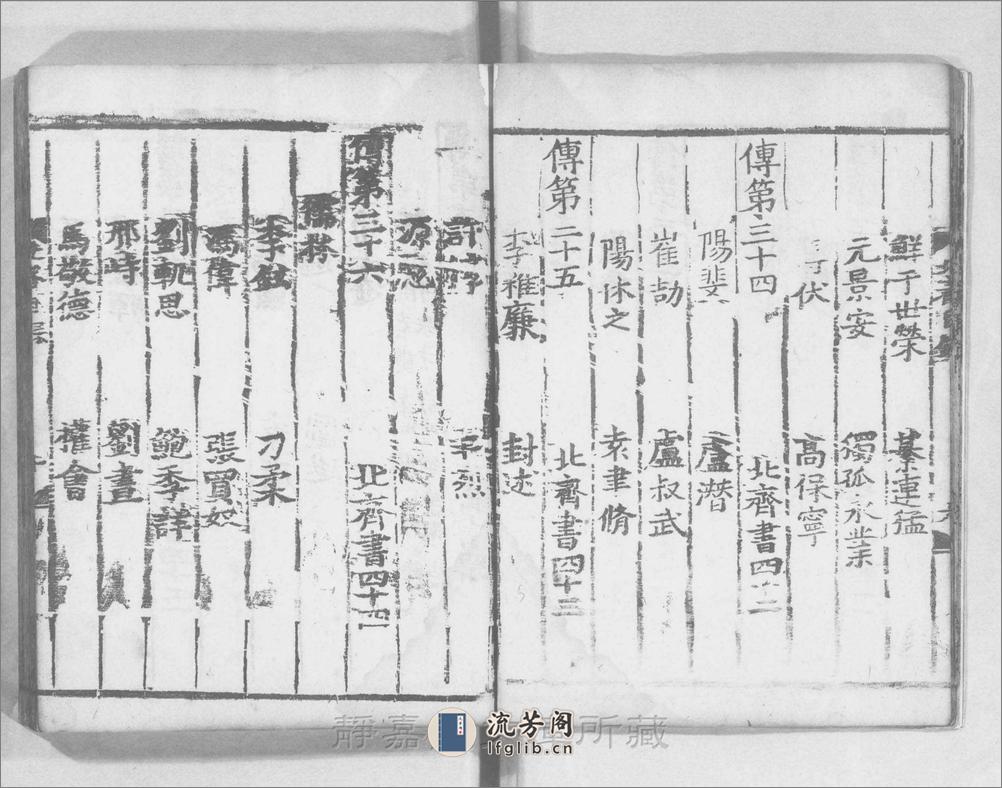 鮮于世榮 綦連猛
元景安 獨孤永業
伏 高保寧
傳第三十四 北齊書四十二
陽斐 盧潛
崔劼 盧叔武
陽休之 袁聿脩
傳第二十五 北齊書四十三
李稚廉 封述
許 羊烈
源
傳第三十六 北齊書四十四
儒林
李鉉 刁柔
馮偉 張買奴
劉軌思 鮑季詳
邢峙 劉晝
馬敬德 權會
靜嘉 所藏
流芳阁
lfglib.cn